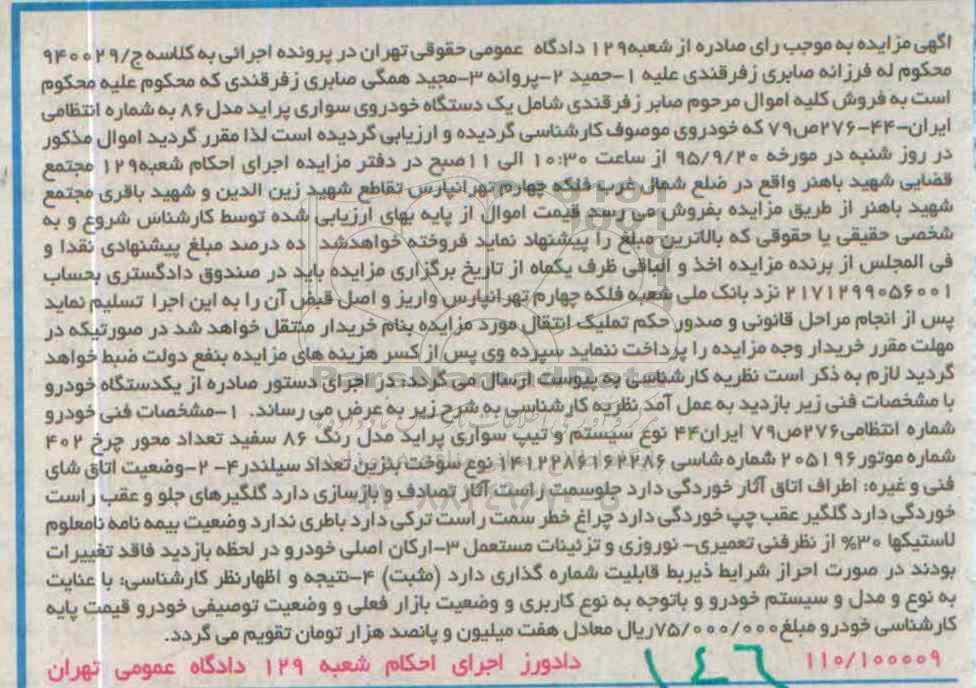 آگهی مزایده به موجب رای صادره از شعبه۱۲۹ دادگاه عمومی حقوقی تهران در پرونده اجرائی به کلاسه ج/۹۴۰۰۲۹
محکوم له فرزانه صابری زفرقندی علیه ۱-حمید ۲-پروانه ۳-مجید همگی صابری زفرقندی که محکوم علیه محکوم
است به فروش کلیه اموال مرحوم صابر زفرقندی شامل یک دستگاه خودروی سواری پراید مدل۸۶ به شماره انتظامی
ایران-۴۴-۲۷۶ص۷۹ که خودروی موصوف کارشناسی گردیده و ارزیابی گردیده است لذا مقرر گردید اموال مذکور
در روز شنبه در مورخه ۹۵/۹/۲۰ از ساعت ۱۰:۳۰ الی ۱۱صبح در دفتر مزایده اجرای احکام شعبه۱۲۹ مجتمع
قضایی شهید باهنر واقع در ضلع شمال غرب فلکه چهارم تهرانپارس تقاطع شهید زین الدین و شهید باقری مجتمع
شهید باهنر از طریق مزایده بفروش می رسد قیمت اموال از پایه بهای ارزیابی شده توسط کارشناس شروع و به
شخصی حقیقی یا حقوقی که بالاترین مبلغ را پیشنهاد نماید فروخته خواهدشد ده درصد مبلغ پیشنهادی نقدا و
فی المجلس از برنده مزایده اخذ و الباقی ظرف یکماه از تاریخ برگزاری مزایده باید در صندوق دادگستری بحساب
۲۱۷۱۲۹۹۰۵۶۰۰۱ نزد بانک ملی شعبه فلکه چهارم تهرانپارس واریز و اصل قبض آن را به این اجرا تسلیم نماید
پس از انجام مراحل قانونی و صدور حکم تملیک انتقال مورد مزایده بنام خریدار منتقل خواهد شد در صورتیکه در
مهلت مقرر خریدار وجه مزایده را پرداخت ننماید سپرده وی پس از کسر هزینه های مزایده بنفع دولت ضبط خواهد
گردید لازم به ذکر است نظریه کارشناسی به پیوست ارسال می گردد: در اجرای دستور صادره از یکدستگاه خودرو
با مشخصات فنی زیر بازدید به عمل آمد نظریه کارشناسی به شرح زیر به عرض می رساند. ۱-مشخصات فنی خودرو
شماره انتظامی۲۷۶ص۷۹ ایران۴۴ نوع سیستم و تیپ سواری پراید مدل رنگ ۸۶ سفید تعداد محور چرخ ۲و۴
شماره موتور۲۰۵۱۹۶ شماره شاسی ۱۴۱۲۲۸۶۱۶۲۲۸۶ نوع سوخت بنزین تعداد سیلندر۴- ۲-وضعیت اتاق شای
فنی و غیره: اطراف اتاق آثار خوردگی دارد جلوسمت راست آثار تصادف و بازسازی دارد گلگیرهای جلو و عقب راست
خوردگی دارد گلگیر عقب چپ خوردگی دارد چراغ خطر سمت راست ترکی دارد باطری ندارد وضعیت بیمه نامه نامعلوم
لاستیکها ۳۰% از نظرفنی تعمیری- نوروزی و تزئینات مستعمل ۳-ارکان اصلی خودرو در لحظه بازدید فاقد تغییرات
بودند در صورت احراز شرایط ذیربط قابلیت شماره گذاری دارد (مثبت) ۴-نتیجه و اظهارنظر کارشناسی: با عنایت
به نوع و مدل و سیستم خودرو و باتوجه به نوع کاربری و وضعیت بازار فعلی و وضعیت توصیفی خودرو قیمت پایه
کارشناسی خودرو مبلغ۷۵/۰۰۰/۰۰۰ریال معادل هفت میلیون و پانصد هزار تومان تقویم می گردد.
۱۱۰/۱۰۰۰۰۹ ۱۴۶ دادورز اجرای احکام شعبه ۱۲۹ دادگاه عمومی تهران
ParsNamadData